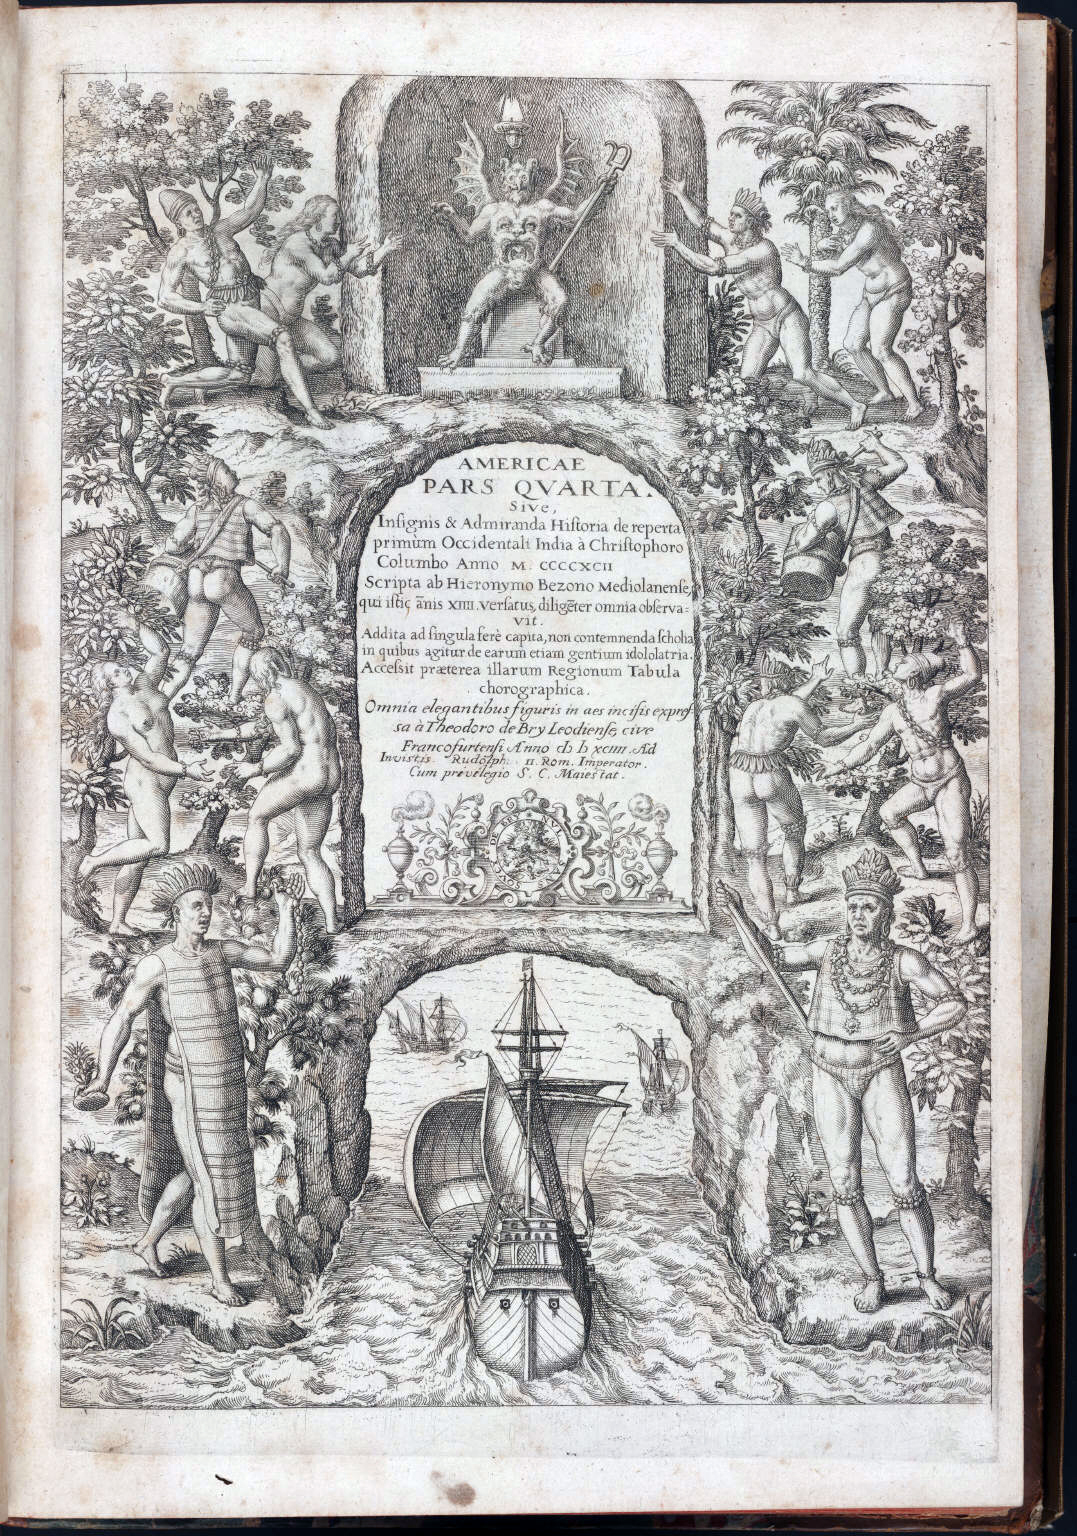 AMERICAE
PARS QVARTA.
Sive,
Insignis & Admiranda Historia de reperta
primùm Occidentali India à Christophoro
Columbo Anno M. CCCCXCII
Scripta ab Hieronymo Bezono Mediolanense,
qui istic ānis XIIII. versatus, diligēter omnia observa=
vit.
Addita ad singula ferè capita, non contemnenda scholia
in quibus agitur de earum etiam gentium idololatria.
Accessit præterea illarum Regionum Tabula
chorographica.
Omnia elegantibus figuris in aes incisis expres-
sa à Theodoro de Bry Leodiense, cive
Francofurtensi Anno cIↄ Iↄ xciiii. Ad
Invictis. Rudolph. II. Rom. Imperator.
Cum privilegio S. C. Maiestat.